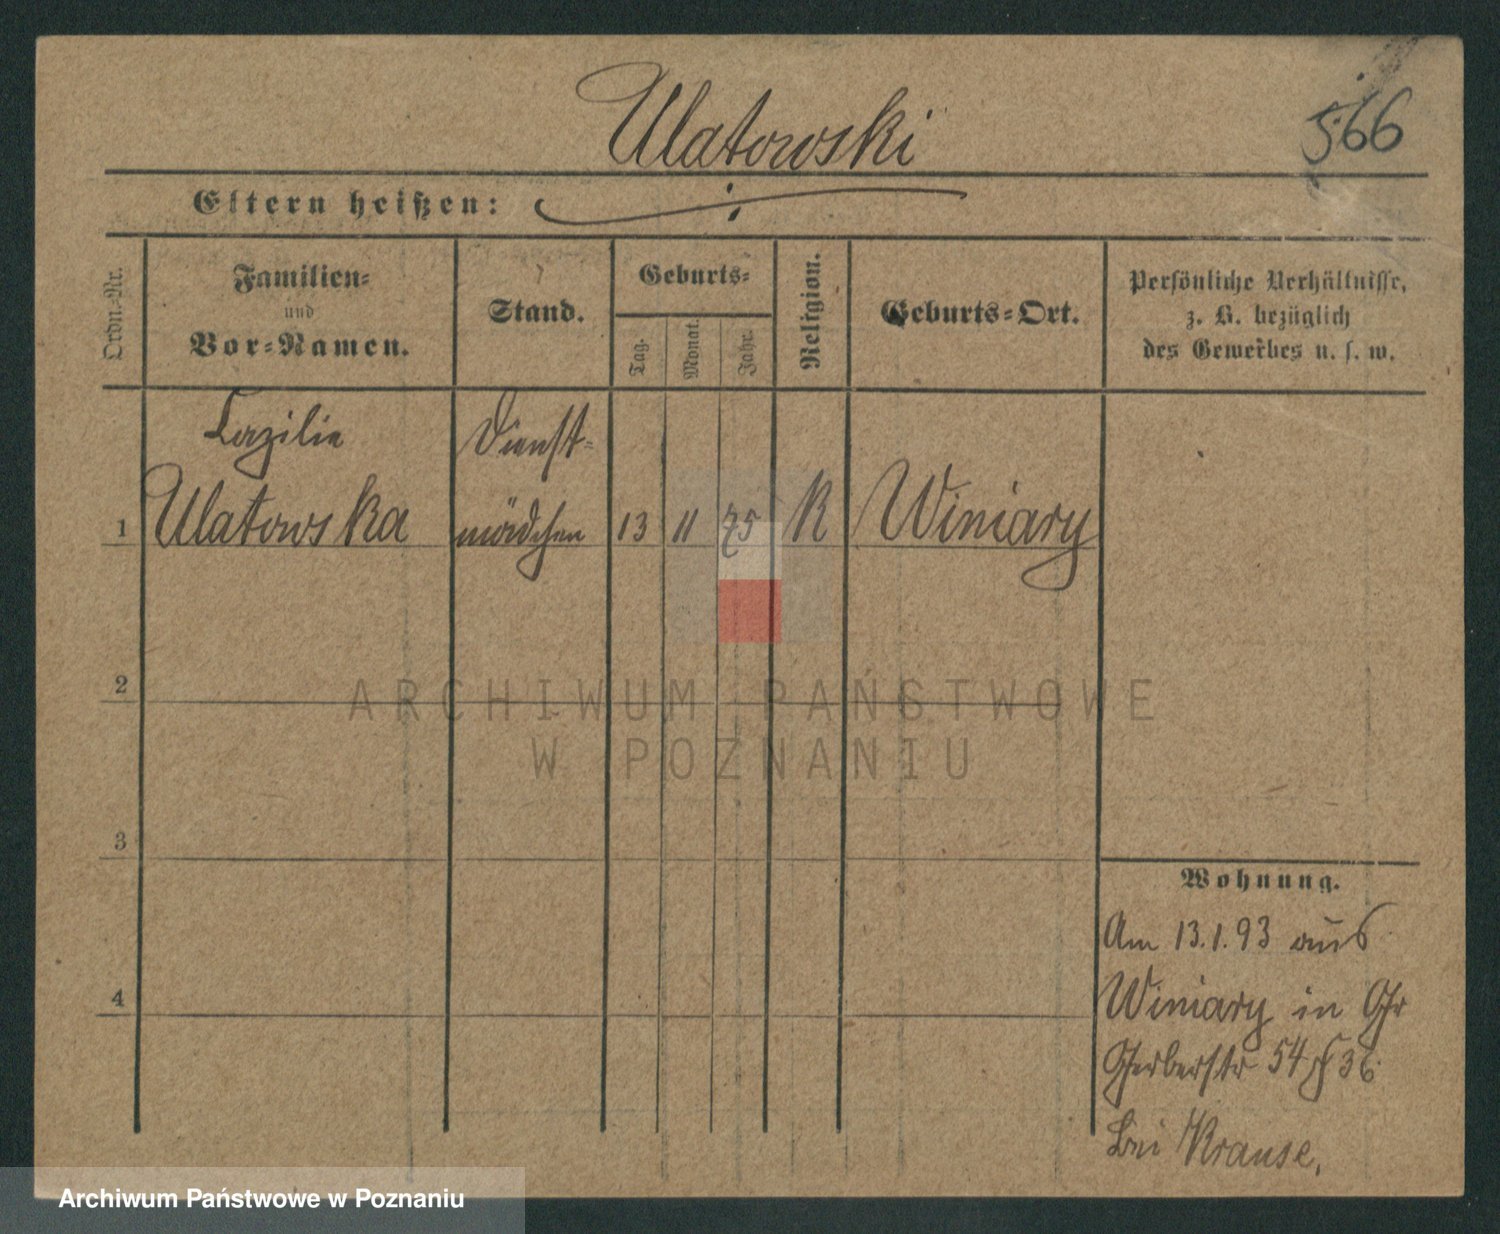 Ulatowski
566
Eltern heißen:
Ordn.-Nr.
Familien-
und
Vor-Namen.
Stand.
Geburts-
Tag.
Monat.
Jahr.
Religion.
Geburts-Ort.
Persönliche Verhältnisse,
z. B. bezüglich
des Gewerbes u. s. w.
Cazilie
Dienst-
1 Ulatowska mädchen 13 11 75 K Winiary
2
ARCHIWUM PAŃSTWOWE
W POZNANIU
3
Wohnung.
Am 13.1.93 aus
4
Winiary in Gr
Gerberstr 54 36
bei Krause.
Archiwum Państwowe w Poznaniu